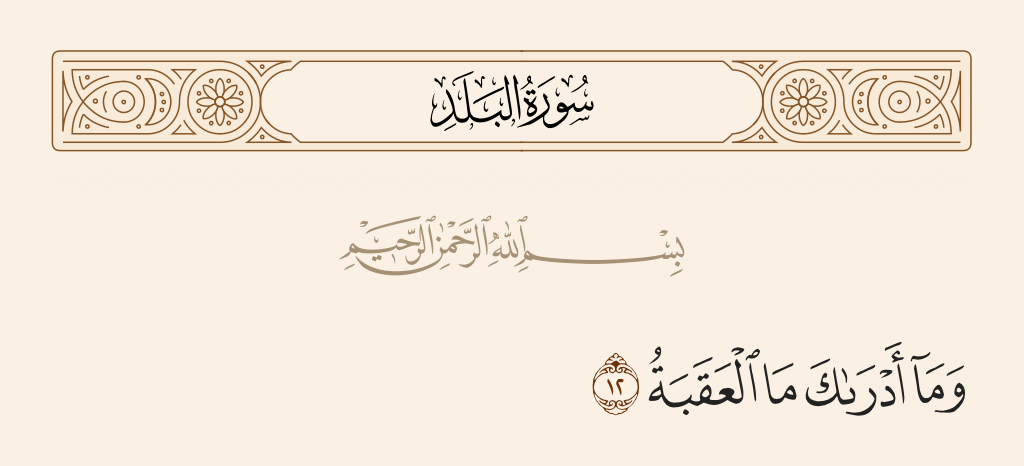 سُورَةُ البَلَدِ
بِسْمِ ٱللَّهِ ٱلرَّحْمَٰنِ ٱلرَّحِيمِ
وَمَآ أَدْرَىٰكَ مَا ٱلْعَقَبَةُ ١٢